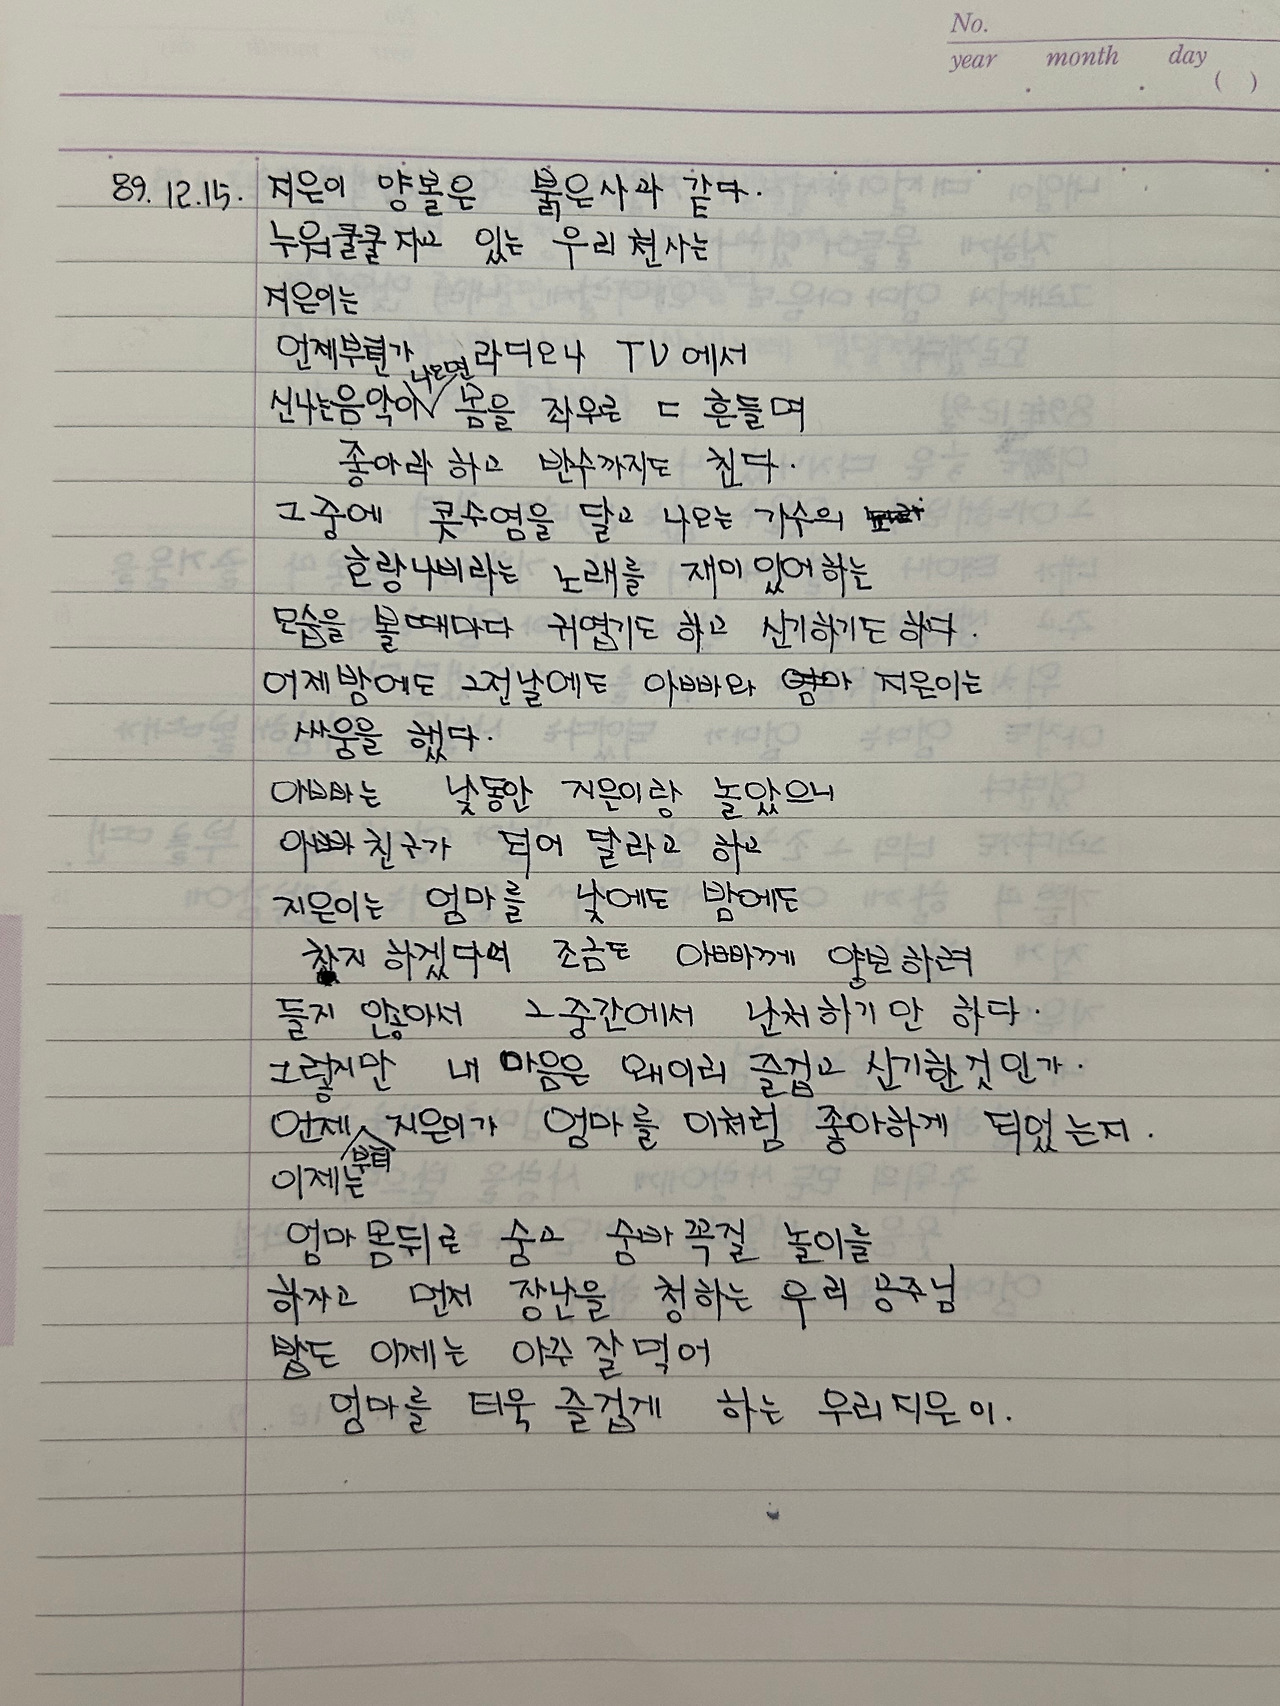 No.
year month day
( )
89. 12. 15. 지은이 양볼은 붉은사과 같다.
누워쿨쿨 자고 있는 우리 천사는
지은이는
언제부턴가 라디오나 TV에서
신나는음악이 나오면 몸을 좌우로 ㄷ 흔들며
좋아라 하고 박수까지도 친다.
그 중에 콧수염을 달고 나오는 가수의
호랑나비라는 노래를 재미있어하는
모습을 볼때마다 귀엽기도 하고 신기하기도 하다.
어제밤에도 그전날에도 아빠와 엄마 지은이는
싸움을 했다.
아빠는 낮동안 지은이랑 놀았으니
아빠 친구가 되어 달라고 하고
지은이는 엄마를 낮에도 밤에도
찾지 하겠다며 조금도 아빠께 양보하려
들지 않아서 그 중간에서 난처하기만 하다.
그렇지만 내 마음은 왜이리 즐겁고 신기한것인가.
언제부터 지은이가 엄마를 이처럼 좋아하게 되었는지.
이제는
엄마몸뒤로 숨고 숨바꼭질 놀이를
하자고 먼저 장난을 청하는 우리 공주님
밥도 이제는 아주 잘먹어
엄마를 더욱 즐겁게 하는 우리지은이.